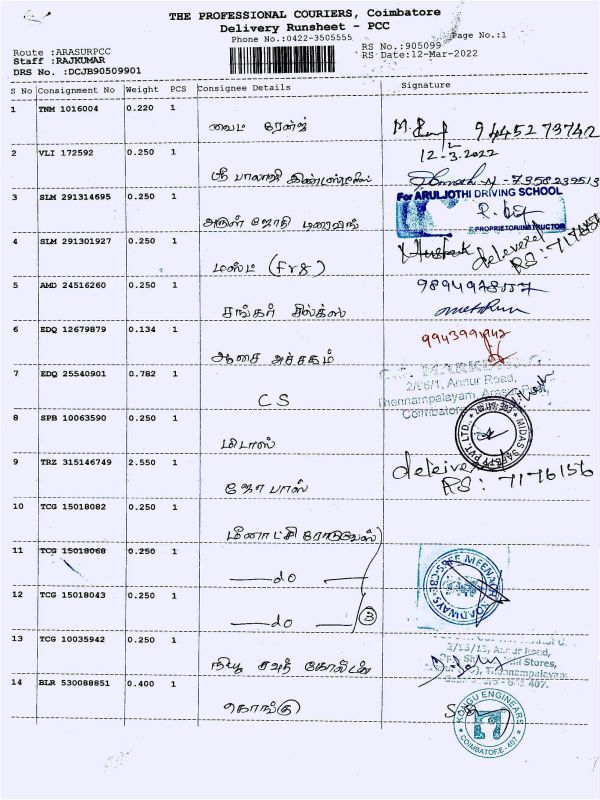 THE PROFESSIONAL COURIERS, Coimbatore
Delivery Runsheet - PCC
Phone No.:0422-3505555
Page No.:1
Route :ARASURPCC
RS No.:905099
Staff :RAJKUMAR
RS Date:12-Mar-2022
DRS No. :DCJB90509901
S No Consignment No Weight PCS Consignee Details Signature
1 TNM 1016004 0.220 1
வைட ரேன்ஜ் 9445273742
12-3.2022
2 VLI 172592 0.250 1
ஸ்ரீ பாலாஜி 7358239513
For ARULJOTHI DRIVING SCHOOL
3 SLM 291314695 0.250 1
அருள் ஜோதி டிரைவிங்
PROPRIETOR/INSTRUCTOR
4 SLM 301927 0.250 1
மஸ்ட் RS: 7176156
5 AMD 24516260 0.250 1
சங்கர் சில்க்ஸ்
6 EDQ 12679879 0.134 1
ஆசை அச்சகம்
7 EDQ 25540901 0.782 1
2/26/1, Annur Road,
Thennampalayam, Arasur Post,
Coimbatore
CS
8 SPB 10063590 0.250 1
மிடாஸ் MIDAS SAFETY PVT. LTD.,
9 TRZ 315146749 2.550 1
ஜோ பாஸ் RS: 7176156
10 TCG 15018082 0.250 1
மீனாட்சி ரோடுவேஸ்
11 TCG 15018068 0.250 1
do
12 TCG 15018043 0.250 1
do 3
13 TCG 10035942 0.250 1
நியூ சக்தி
Annur Road,
Stores,
Thennampalayam
641 407.
14 BLR 530088851 0.400 1
கொங்கு
KONGU ENGINEARS
COIMBATORE - 407